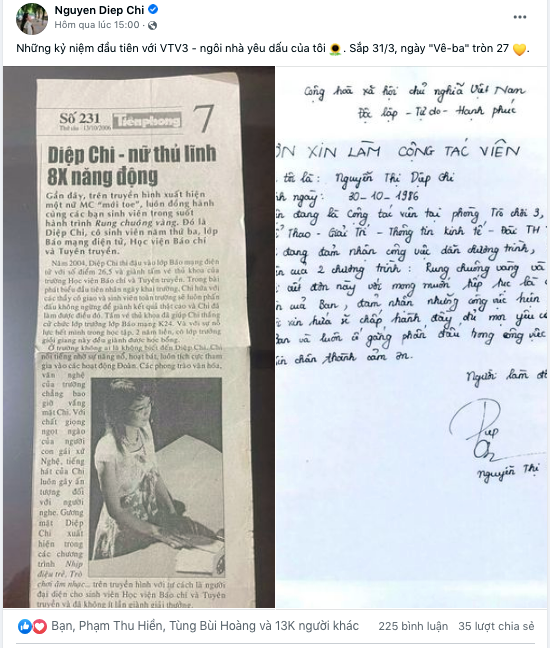 Nguyen Diep Chi
Hôm qua lúc 15:00 ·
Những kỷ niệm đầu tiên với VTV3 - ngôi nhà yêu dấu của tôi 🌻. Sắp 31/3, ngày "Vê-ba" tròn 27 💛.
SỐ 231
Thứ sáu - 13/10/2006
Tiềnphong
7
Diệp Chi - nữ thủ lĩnh
8X năng động
Gần đây, trên truyền hình xuất hiện
một nữ MC "mới toe", luôn đồng hành
cùng các bạn sinh viên trong suốt
hành trình Rung chuông vàng. Đó là
Diệp Chi, cô sinh viên năm thứ ba, lớp
Báo mạng điện tử, Học viện Báo chí
và Tuyên truyền.
Năm 2004, Diệp Chi thi đậu vào lớp Báo mạng điện
tử với số điểm 26,5 và giành tấm vé thủ khoa của
trường Học viện Báo chí và Tuyên truyền. Trong bài
phát biểu đầu tiên nhân ngày khai trường, Chi hứa với
các thầy cô giáo và sinh viên toàn trường sẽ luôn phấn
đấu không ngừng để giành kết quả thật cao và Chi đã
làm được điều đó. Tấm vé thủ khoa đã giúp Chi thẳng
cử chức lớp trưởng lớp Báo mạng K24. Và với sự nỗ
lực hết mình trong học tập, 2 năm liền, cô lớp trưởng
giỏi giang này đều giành được học bổng.
Ở trường không ai là không biết đến Diệp Chi. Chi
nổi tiếng nhờ sự năng nổ, hoạt bát, luôn tích cực tham
gia vào các hoạt động Đoàn. Các phong trào văn hóa,
văn nghệ
của trường
chẳng bao
giờ vắng
mặt Chi. Với
chất giọng
ngọt ngào
của người
con gái xứ
Nghệ, tiếng
hát của Chi
luôn gây ấn
tượng đối
với người
nghe. Gương
mặt Diệp
Chi xuất
hiện trong
các chương
trình Nhịp
điệu trẻ, Trò
chơi âm nhạc... trên truyền hình với tư cách là người
đại diện cho sinh viên Học viện Báo chí và Tuyên
truyền và đã không ít lần giành giải thưởng.
Cộng hòa xã hội chủ nghĩa Việt Nam
Độc lập - Tự do - Hạnh phúc
ƠN XIN LÀM CỘNG TÁC VIÊN
tôi là : Nguyễn Thị Diệp Chi
nh ngày : 30 - 10 - 1986
ện đang là Cộng tác viên tại phòng Trò chơi 3,
Thao - Giải Trí - Thông tin kinh tế - Đài TH
đang đảm nhận công việc dẫn chương trình,
qua 2 chương trình : Rung chuông vàng và
viết đơn này với mong muốn tiếp tục là
của Ban, đảm nhận những công việc hiện
xin hứa sẽ chấp hành đầy đủ mọi yêu cầ
Ban và luôn cố gắng phấn đấu trong công việc
in chân thành cảm ơn.
Người làm đ
Diep
Chi
Nguyễn Thị
Bạn, Phạm Thu Hiền, Tùng Bùi Hoàng và 13K người khác
225 bình luận
35 lượt chia sẻ